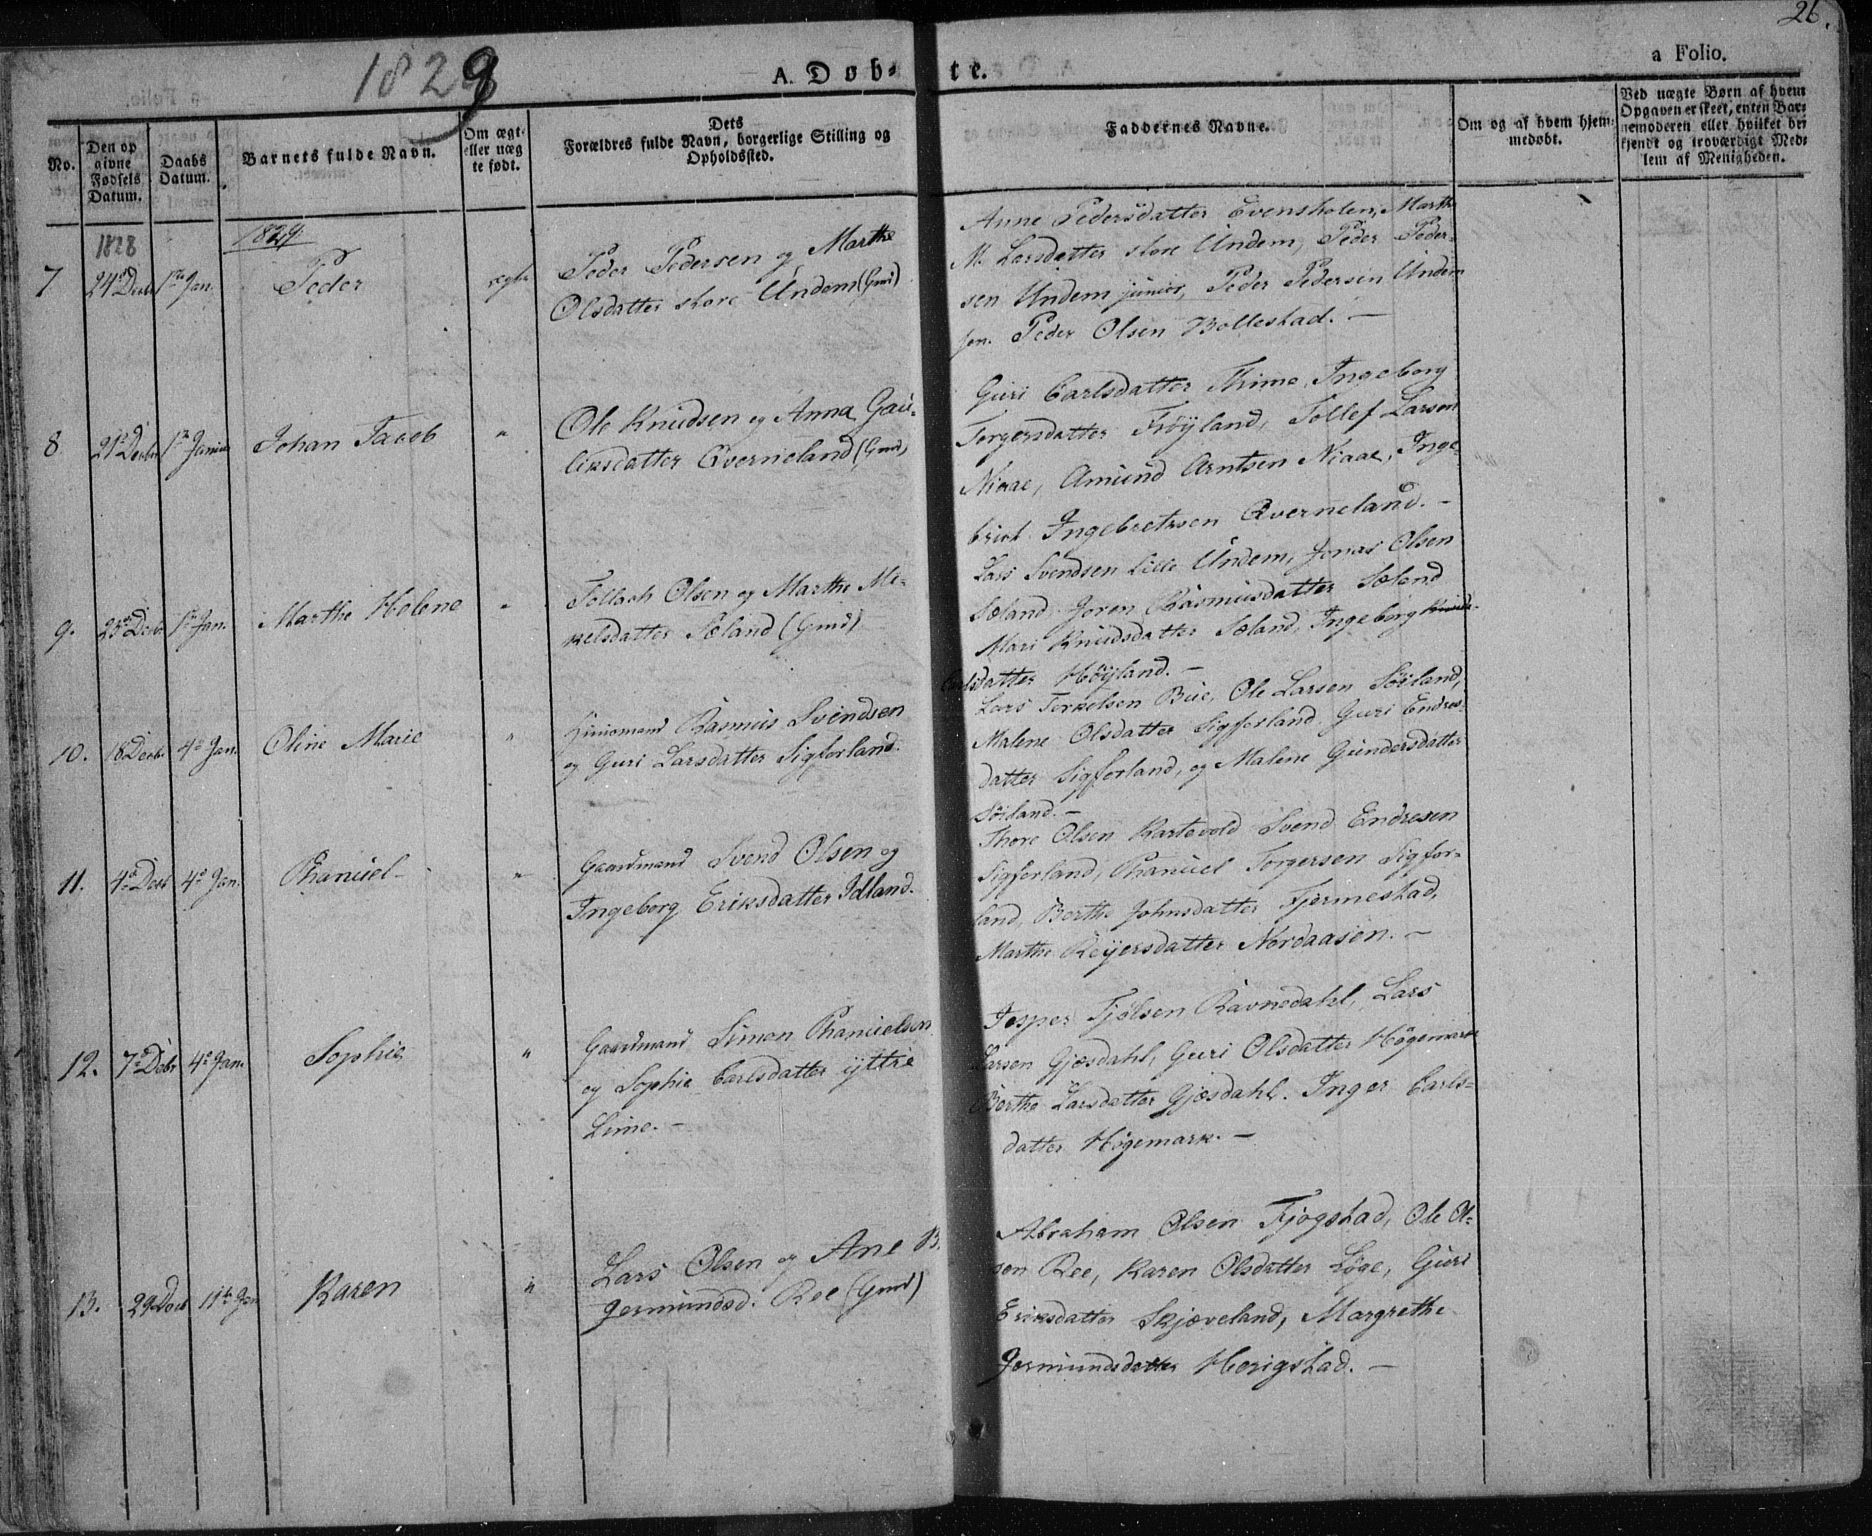 26.
1829
A. Døb-te.
a Folio.
No.
Den op
givne
Fødsels
Datum.
Daabs
Datum.
Barnets fulde Navn.
Om ægt-
eller uæg
te født.
Dets
Forældres fulde Navn, borgerlige Stilling og
Opholdssted.
Faddernes Navne.
Om og af hvem hjem-
medøbt.
Ved uægte Børn af hvem
Opgaven er skeet, enten Bar-
nemoderen eller hvilket be-
kjendt og troværdigt Med-
lem af Menigheden.
1828
1829
7
24de Decbr
1ste Jan.
Peder
ægte
Peder Pedersen og Marthe
Olsdatter store Undem (Gmd)
Anne Pedersdatter Evensholen, Marthe
M. Larsdatter store Undem, Peder Peder-
sen Undem junior, Peder Pedersen Undem
sen. Peder Olsen Bollestad. —
8
21de Decbr
1ste Januar
Johan Jacob
"
Ole Knudsen og Anna Gau-
liksdatter Qverneland (Gmd)
Guri Carlsdatter Thime, Ingeborg
Torgersdatter Frøyland, Tollef Larsen
Niaae, Amund Arntsen Niaae, Inge-
brict Ingebretsen Qverneland. —
9.
25de Decbr
1ste Jan.
Marthe Helene
"
Tollach Olsen og Marthe Mi-
kelsdatter Sæland (Gmd)
Lars Svendsen Lille Undem, Jonas Olsen
Sæland Joren Rasmusdatter Sæland
Mari Knudsdatter Sæland, Ingeborg
Carlsdatter Høyland. —
10.
18 Decbr.
4de Jan.
Oline Marie
"
Huusmand Rasmus Svendsen
og Guri Larsdatter Sigferland.
Lars Torkelsen Bue, Ole Larsen Söiland,
Malene Olsdatter Sigferland, Guri Endres-
datter Sigferland, og Malene Gundersdatter
Söiland. —
11.
4de Decb
4de Jan.
Thanuel
"
Gaardmand Svend Olsen og
Ingeborg Eriksdatter Idland.
Thore Olsen Kartevold Svend Endresen
Sigferland, Thanuel Torgersen Sigfer-
land, Berthe Johnsdatter Fjermestad,
Marthe Reijersdatter Nordaasen. —
12.
7de Debr
4de Jan.
Sophie
"
Gaardmand Simon Thanuelsen
og Sophie Carlsdatter yttre
Lime. —
Jesper Fjelsen Ravnedahl, Lars
Larsen Gjesdahl, Guri Olsdatter Högemark
Berthe Larsdatter Gjesdahl. Inger Carls-
datter Högemark. —
13.
29 Decb
11te Jan
Karen
"
Lars Olsen og Ane B.
Jermundsd. Ree (Gmd)
Abraham Olsen Fjogstad, Ole Ol-
sen Ree, Karen Olsdatter Løge, Guri
Eriksdatter Skjæveland, Margrethe
Jermundsdatter Herigstad. —